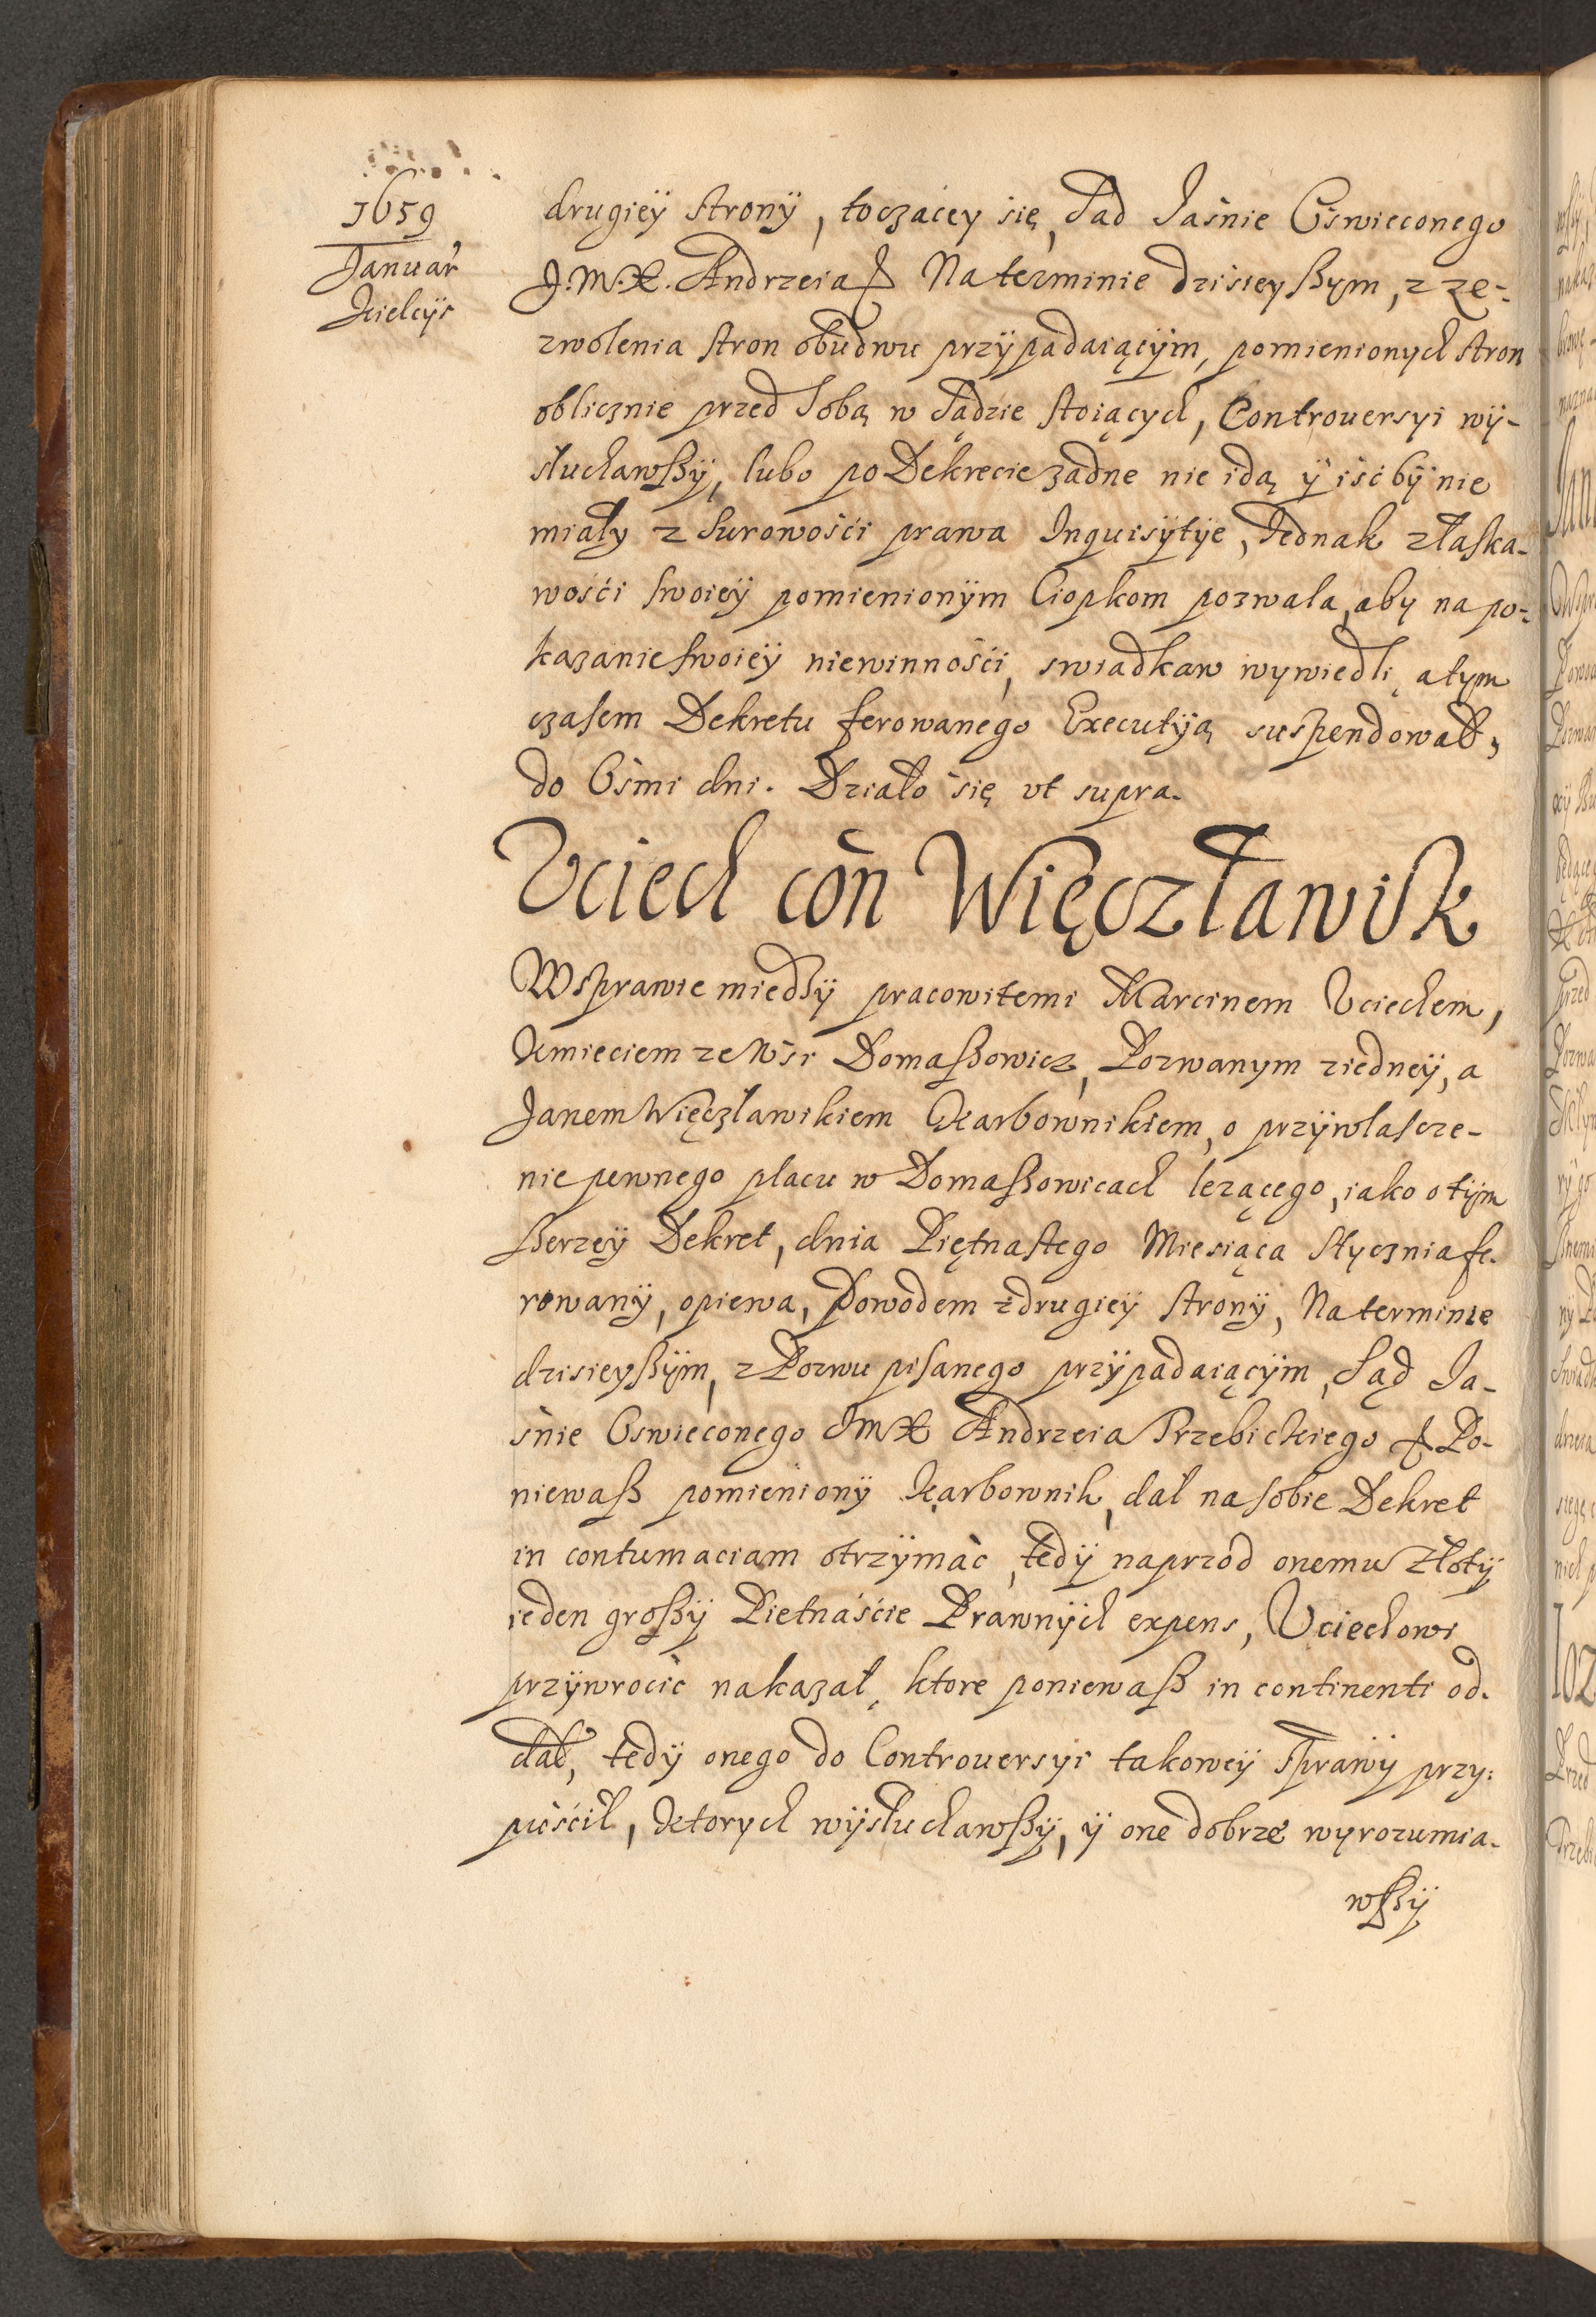 1659
Januar
Kielcÿs
drugieÿ stronÿ, toczącey się, Sąd Iaśnie Oświeconego
J. M. X. Andrzeia & Na terminie dzisieyßym, z ze-
zwolenia stron obudwu przÿpadaiącÿm, pomienionych stron
oblicznie przed sobą w Sądzie stoiących, Controuersyi wÿ-
słuchawßÿ, lubo po Dekrecie żadne nie idą ÿ iść bÿ nie
miały z surowości prawa Inquisÿtÿe, Jednak z łaska-
wości swoieÿ pomienionÿm Ciopkom pozwala, aby na po-
kazanie swoieÿ niewinności, swiadkow wywiedli, a tym
czasem Dekretu ferowanego Executÿą suspendował,
do Ośmi dni. Działo się vt supra.
Vciech con Więczławik
W sprawie miedzÿ pracowitemi Marcinem Vciechem,
Kmieciem ze Wsi Domaßowicz, Pozwanym z iedneÿ, a
Janem Więczławikiem Karbownikiem, o przÿwłascze-
nie pewnego placu w Domaßowicach leżącego, iako o tÿm
ßerzeÿ Dekret, dnia Piętnastego Miesiąca Stycznia fe-
rowanÿ, opiewa, Powodem z drugieÿ stronÿ, Na terminie
dzisieyßÿm, z Pozwu pisanego przÿpadaiącÿm, Sąd Ia-
śnie Oswieconego JMX Andrzeia Trzebickiego & Po-
niewaß pomienionÿ Karbownik, dał na sobie Dekret
in contumaciam otrzÿmać, tedÿ naprzod onemu złotÿ
ieden großÿ Pietnaście Prawnÿch expens, Vciechowi
przÿwrocić nakazał, ktore poniewaß in continenti od-
dał, tedÿ onego do Controuersyi takoweÿ sprawÿ przy-
puścił, Ktorych wÿsłuchawßÿ, ÿ one dobrze wyrozumia-
wßÿ